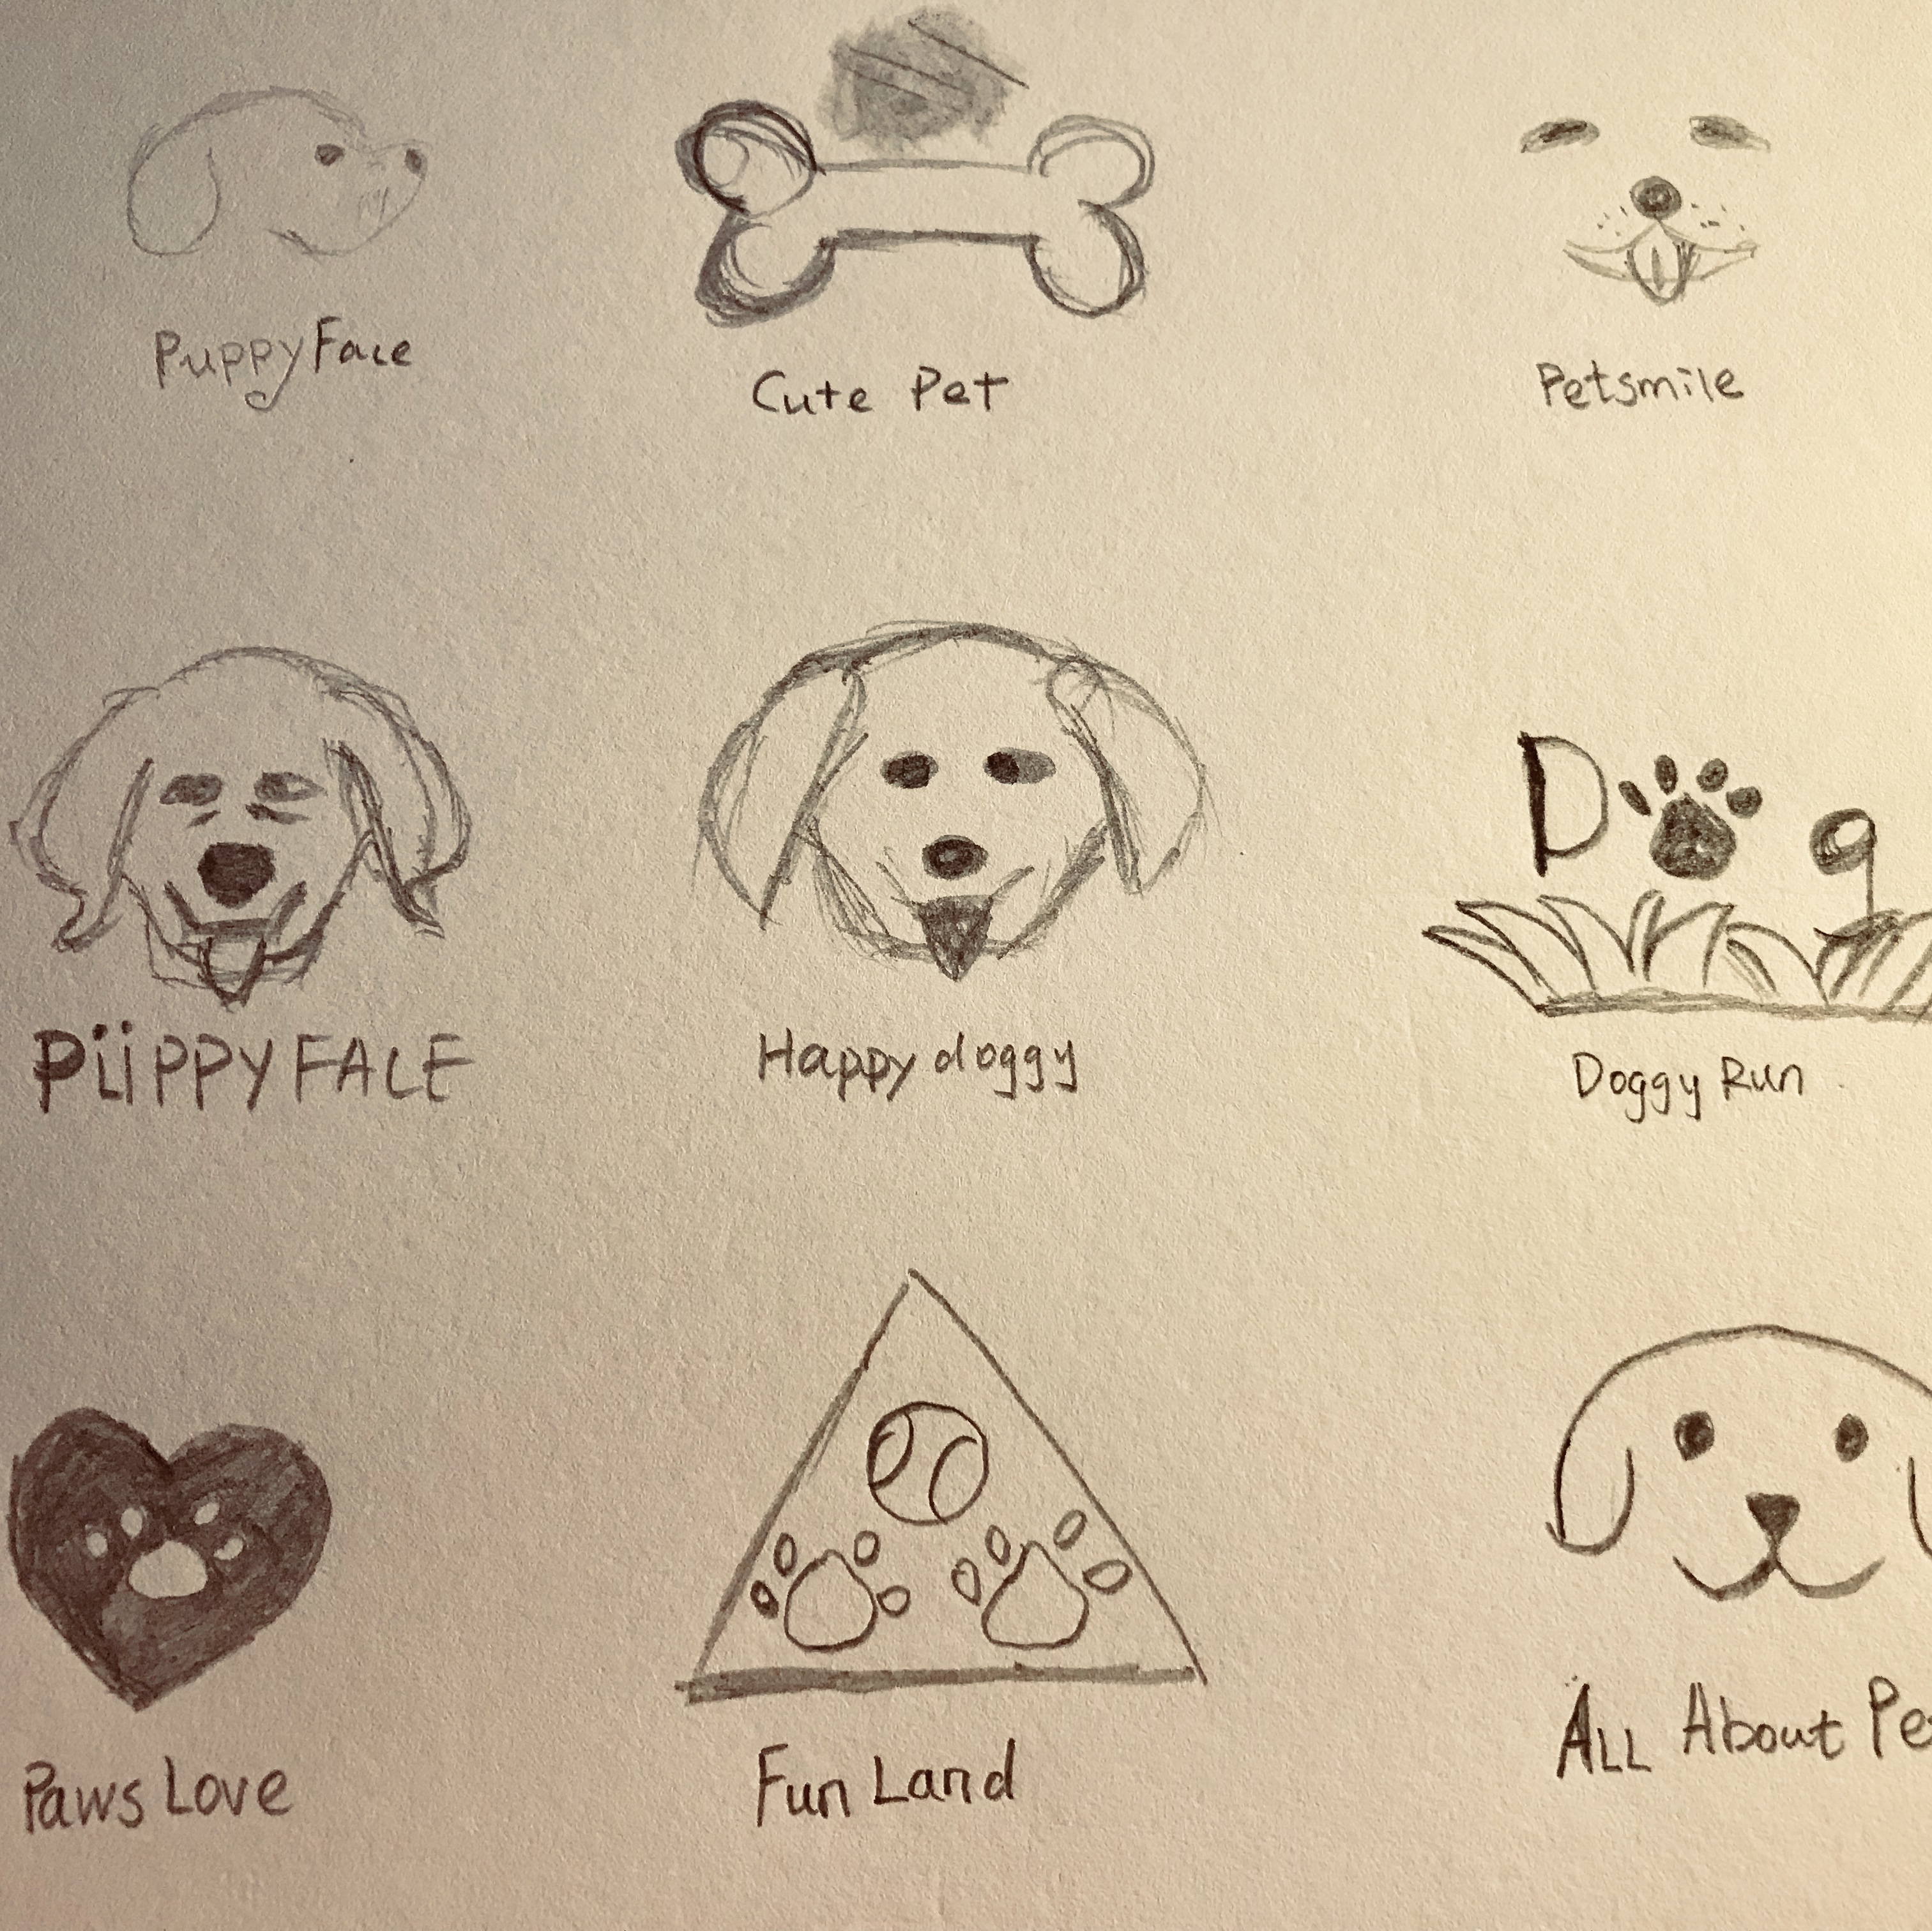 Puppy Face
Cute Pet
Petsmile
D g
PüPPY FACE
Happy doggy
Doggy Run
Paws Love
Fun Land
ALL About Pe